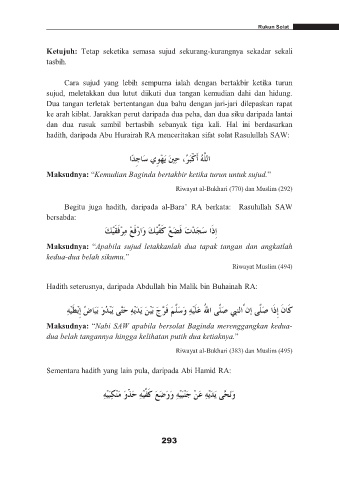 Rukun Solat
Ketujuh: Tetap seketika semasa sujud sekurang-kurangnya sekadar sekali
tasbih.
Cara sujud yang lebih sempurna ialah dengan bertakbir ketika turun
sujud, meletakkan dua lutut diikuti dua tangan kemudian dahi dan hidung.
Dua tangan terletak bertentangan dua bahu dengan jari-jari dilepaskan rapat
ke arah kiblat. Jarakkan perut daripada dua peha, dan dua siku daripada lantai
dan dua rusuk sambil bertasbih sebanyak tiga kali. Hal ini berdasarkan
hadith, daripada Abu Hurairah RA menceritakan sifat solat Rasulullah SAW:
اللَّهُ أَكْبَرُ، حِينَ يَهْوِي سَاجِدًا
Maksudnya: “Kemudian Baginda bertakbir ketika turun untuk sujud.”
Riwayat al-Bukhari (770) dan Muslim (292)
Begitu juga hadith, daripada al-Bara’ RA berkata: Rasulullah SAW
bersabda:
إِذَا سَجَدْتَ فَضَعْ كَفَّيْكَ وَارْفَعْ مِرْفَقَيْكَ
Maksudnya: “Apabila sujud letakkanlah dua tapak tangan dan angkatlah
kedua-dua belah sikumu.”
Riwayat Muslim (494)
Hadith seterusnya, daripada Abdullah bin Malik bin Buhainah RA:
أَنَّ النبي صَلَّى اللهُ عَلَيْهِ وَسَلَّمَ كَانَ إِذَا صَلَّى فَرَّجَ بَيْنَ يَدَيْهِ حَتَّى يَبْدُوَ بَيَاضُ إِبْطَيْهِ
Maksudnya: “Nabi SAW apabila bersolat Baginda merenggangkan kedua-
dua belah tangannya hingga kelihatan putih dua ketiaknya.”
Riwayat al-Bukhari (383) dan Muslim (495)
Sementara hadith yang lain pula, daripada Abi Hamid RA:
وَنَحَّى يَدَيْهِ عَنْ جَنْبَيْهِ وَوَضَعَ كَفَّيْهِ حَذْوَ مَنْكِبَيْهِ
293